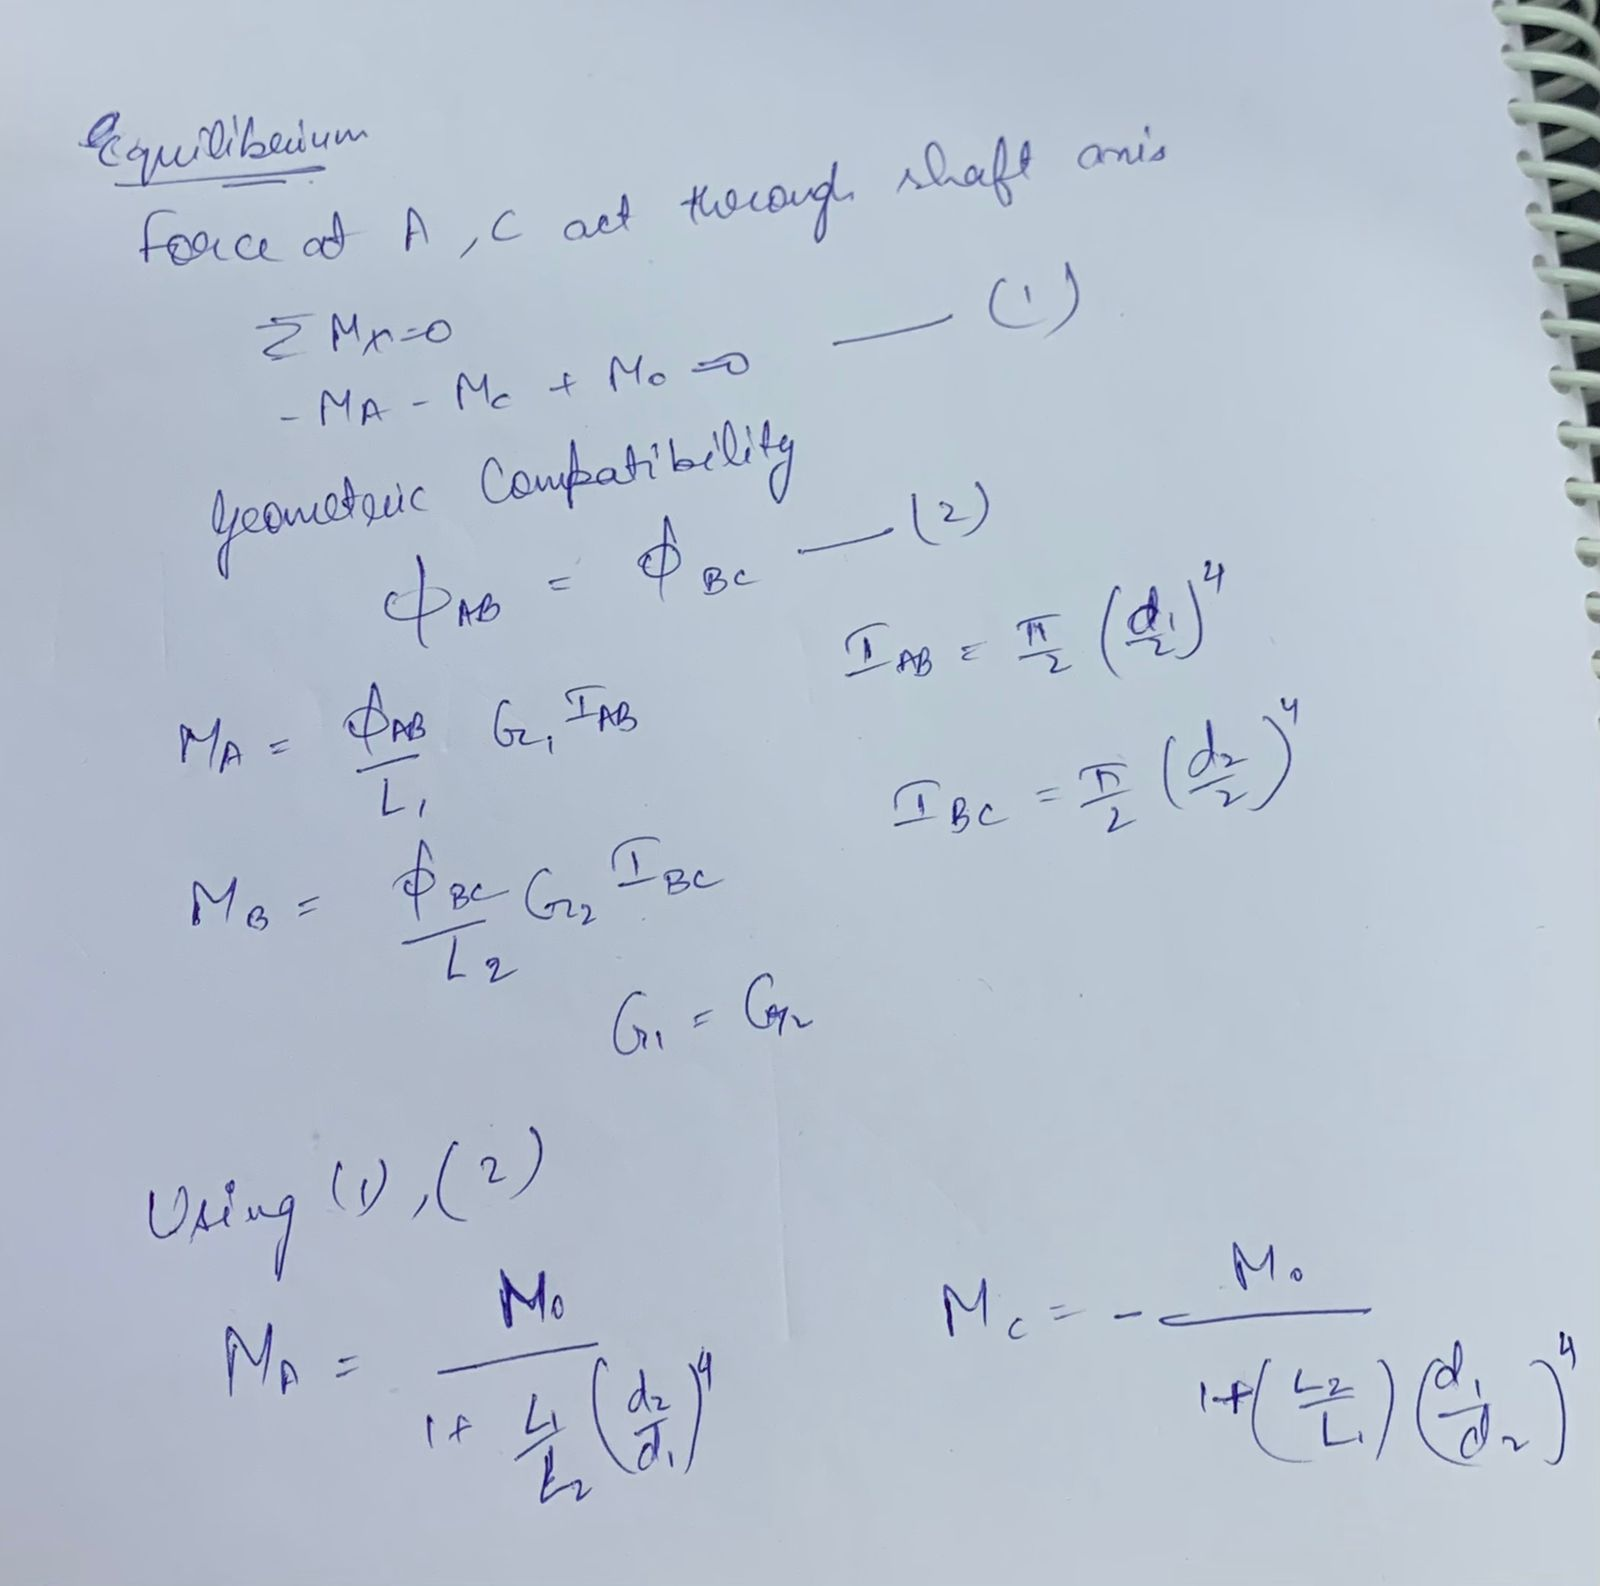 Equilibrium
Force at A, C act through shaft axis
Σ Mx=0
- MA - Mc + Mo =0 — (1)
Geometric Compatibility
ϕAB = ϕBC — (2)
IAB = π/2 (d1/2)^4
MA = ϕAB/L1 G1 IAB
IBC = π/2 (d2/2)^4
MB = ϕBC/L2 G2 IBC
G1 = G2
Using (1), (2)
MA = Mo/(1+ L1/L2 (d2/d1)^4)
Mc = - Mo/(1+(L2/L1)(d1/d2)^4)